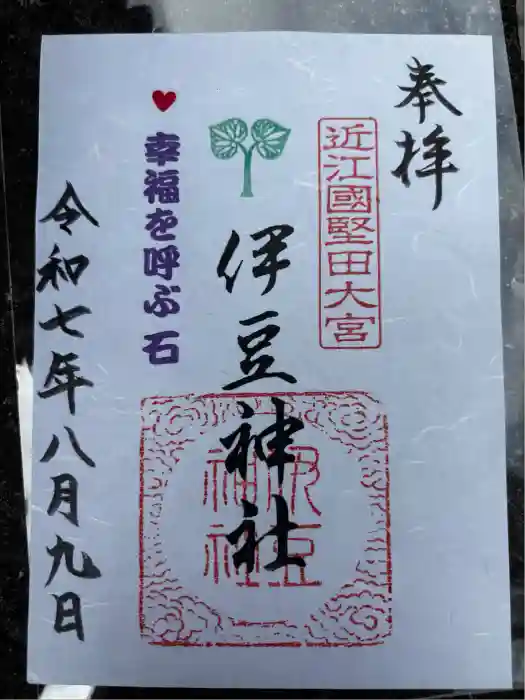 奉拝
近江國堅田大宮
伊豆神社
伊豆
神社
幸福を呼ぶ石
令和七年八月九日